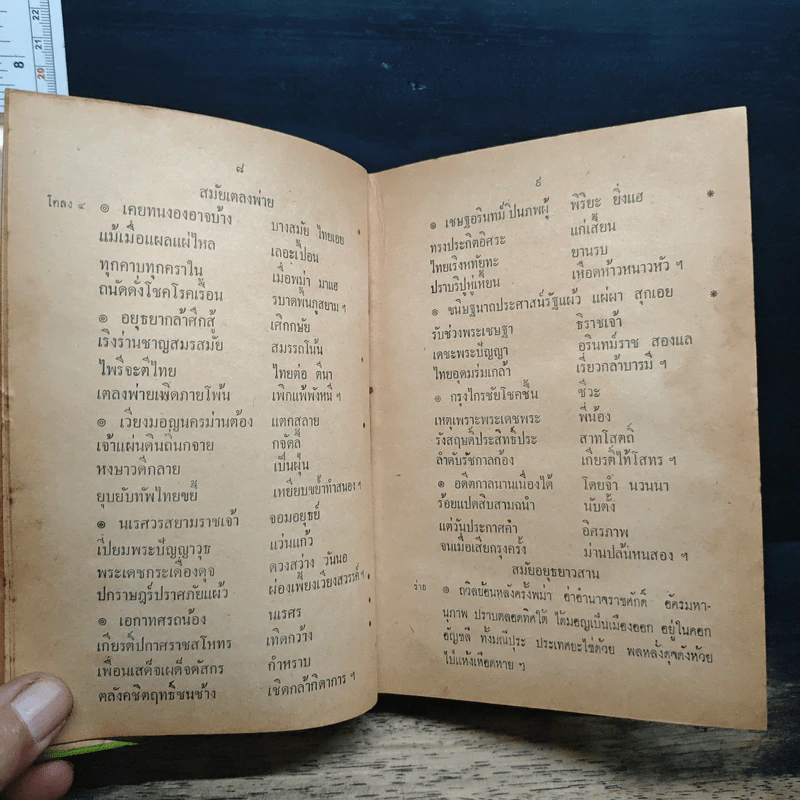 ๘
สมัยเตลงพ่าย
โคลง ๔ ๏ เคยทนงองอาจบ้าง บางสมัย ไทยเอย
แม้เมื่อแผลแผ่ไหล เถอะเปื้อน
ทุกคาบทุกคราใน เมื่อพม่า มาแฮ
ถนัดดั่งโชคโรคเรื้อน รบาดพื้นภูสยาม ฯ
๏ อยุธยากล้าศึกสู้ เศิกกษัย
เริงร่านชาญสมรสมัย สมรรถโน้น
ไพรีจะตีไทย ไทยต่อ ตีนา
เตลงพ่ายเพิดภายโพ้น เพิกแพ้พังหนี ฯ
๏ เวียงมอญนครม่านต้อง แตกสลาย
เจ้าแผ่นดินถิ่นกจาย กจัดลี้
หงษาวดีกลาย เป็นฝุ่น
ยุบยับทัพไทยขยี้ เหยียบขย้ำทำสนอง ฯ
๏ นเรศวรสยามราชเจ้า จอมอยุธย์
เปี่ยมพระปัญญาวุธ แว่นแก้ว
พระเดชกระเดื่องดุจ ดวงสว่าง วันนอ
ปกราษฎร์ปราศภัยแผ้ว ผ่องเพี้ยงเวียงสวรรค์ ฯ
๏ เอกาทศรถน้อง นเรศร
เกียรติ์ปกาศราชสโหทร เทิดกว้าง
เพื่อนเสด็จเผด็จดัสกร กำหราบ
ตลังคชิตฤทธิ์ชนช้าง เชิดกล้ากิดาการ ฯ
๙
๏ เชษฐอรินทม์ปิ่นภพผู้ พิริยะ ยิ่งแฮ *
ทรงประกิตอิศระ แก่เสี้ยน
ไทยเริงหทัยทะ ยานรบ
ปราบริปูหมู่เหี้ยน เหือดห้าวหนาวหัว ฯ
๏ ขนิษฐนาถประศาสน์รัฐแผ้ว แผ่ผา สุกเอย *
รับช่วงพระเชษฐา ธิราชเจ้า
เดชะพระปัญญา อรินทม์ราช สองแล
ไทยอุดมร่มเกล้า เรี่ยวกล้าบารมี ฯ
๏ กรุงไกรชัยโชคชั้น ชีวะ
เหตุเพราะพระเดชพระ พี่น้อง
รังสฤษดิ์ประสิทธิ์ประ สาทโสตถิ์
ลำดับรัชกาลก้อง เกียรติ์ไท้โสทร ฯ
๏ อดีตกาลนานเนื่องได้ โดยจำ นวนนา
ร้อยแปดสิบสามฉนำ นับตั้ง
แต่วันประกาศคำ อิศรภาพ
จนเมื่อเสียกรุงครั้ง ม่านปล้นหนสอง ฯ
สมัยอยุธยาวสาน
ร่าย ๏ ถวิลย้อนหลังครั้งพม่า อ่าอำนาจราชศักดิ์ อัครมหา-
นุภาพ ปราบตลอดทิศใต้ ได้มอญเป็นเมืองออก อยู่ในคอก
อัญชลี ทั้งมณีปุระ ประเทศยะไข่ด้วย พลหลั่งดุจดังห้วย
ไป่แห้งเหือดหาย ฯ